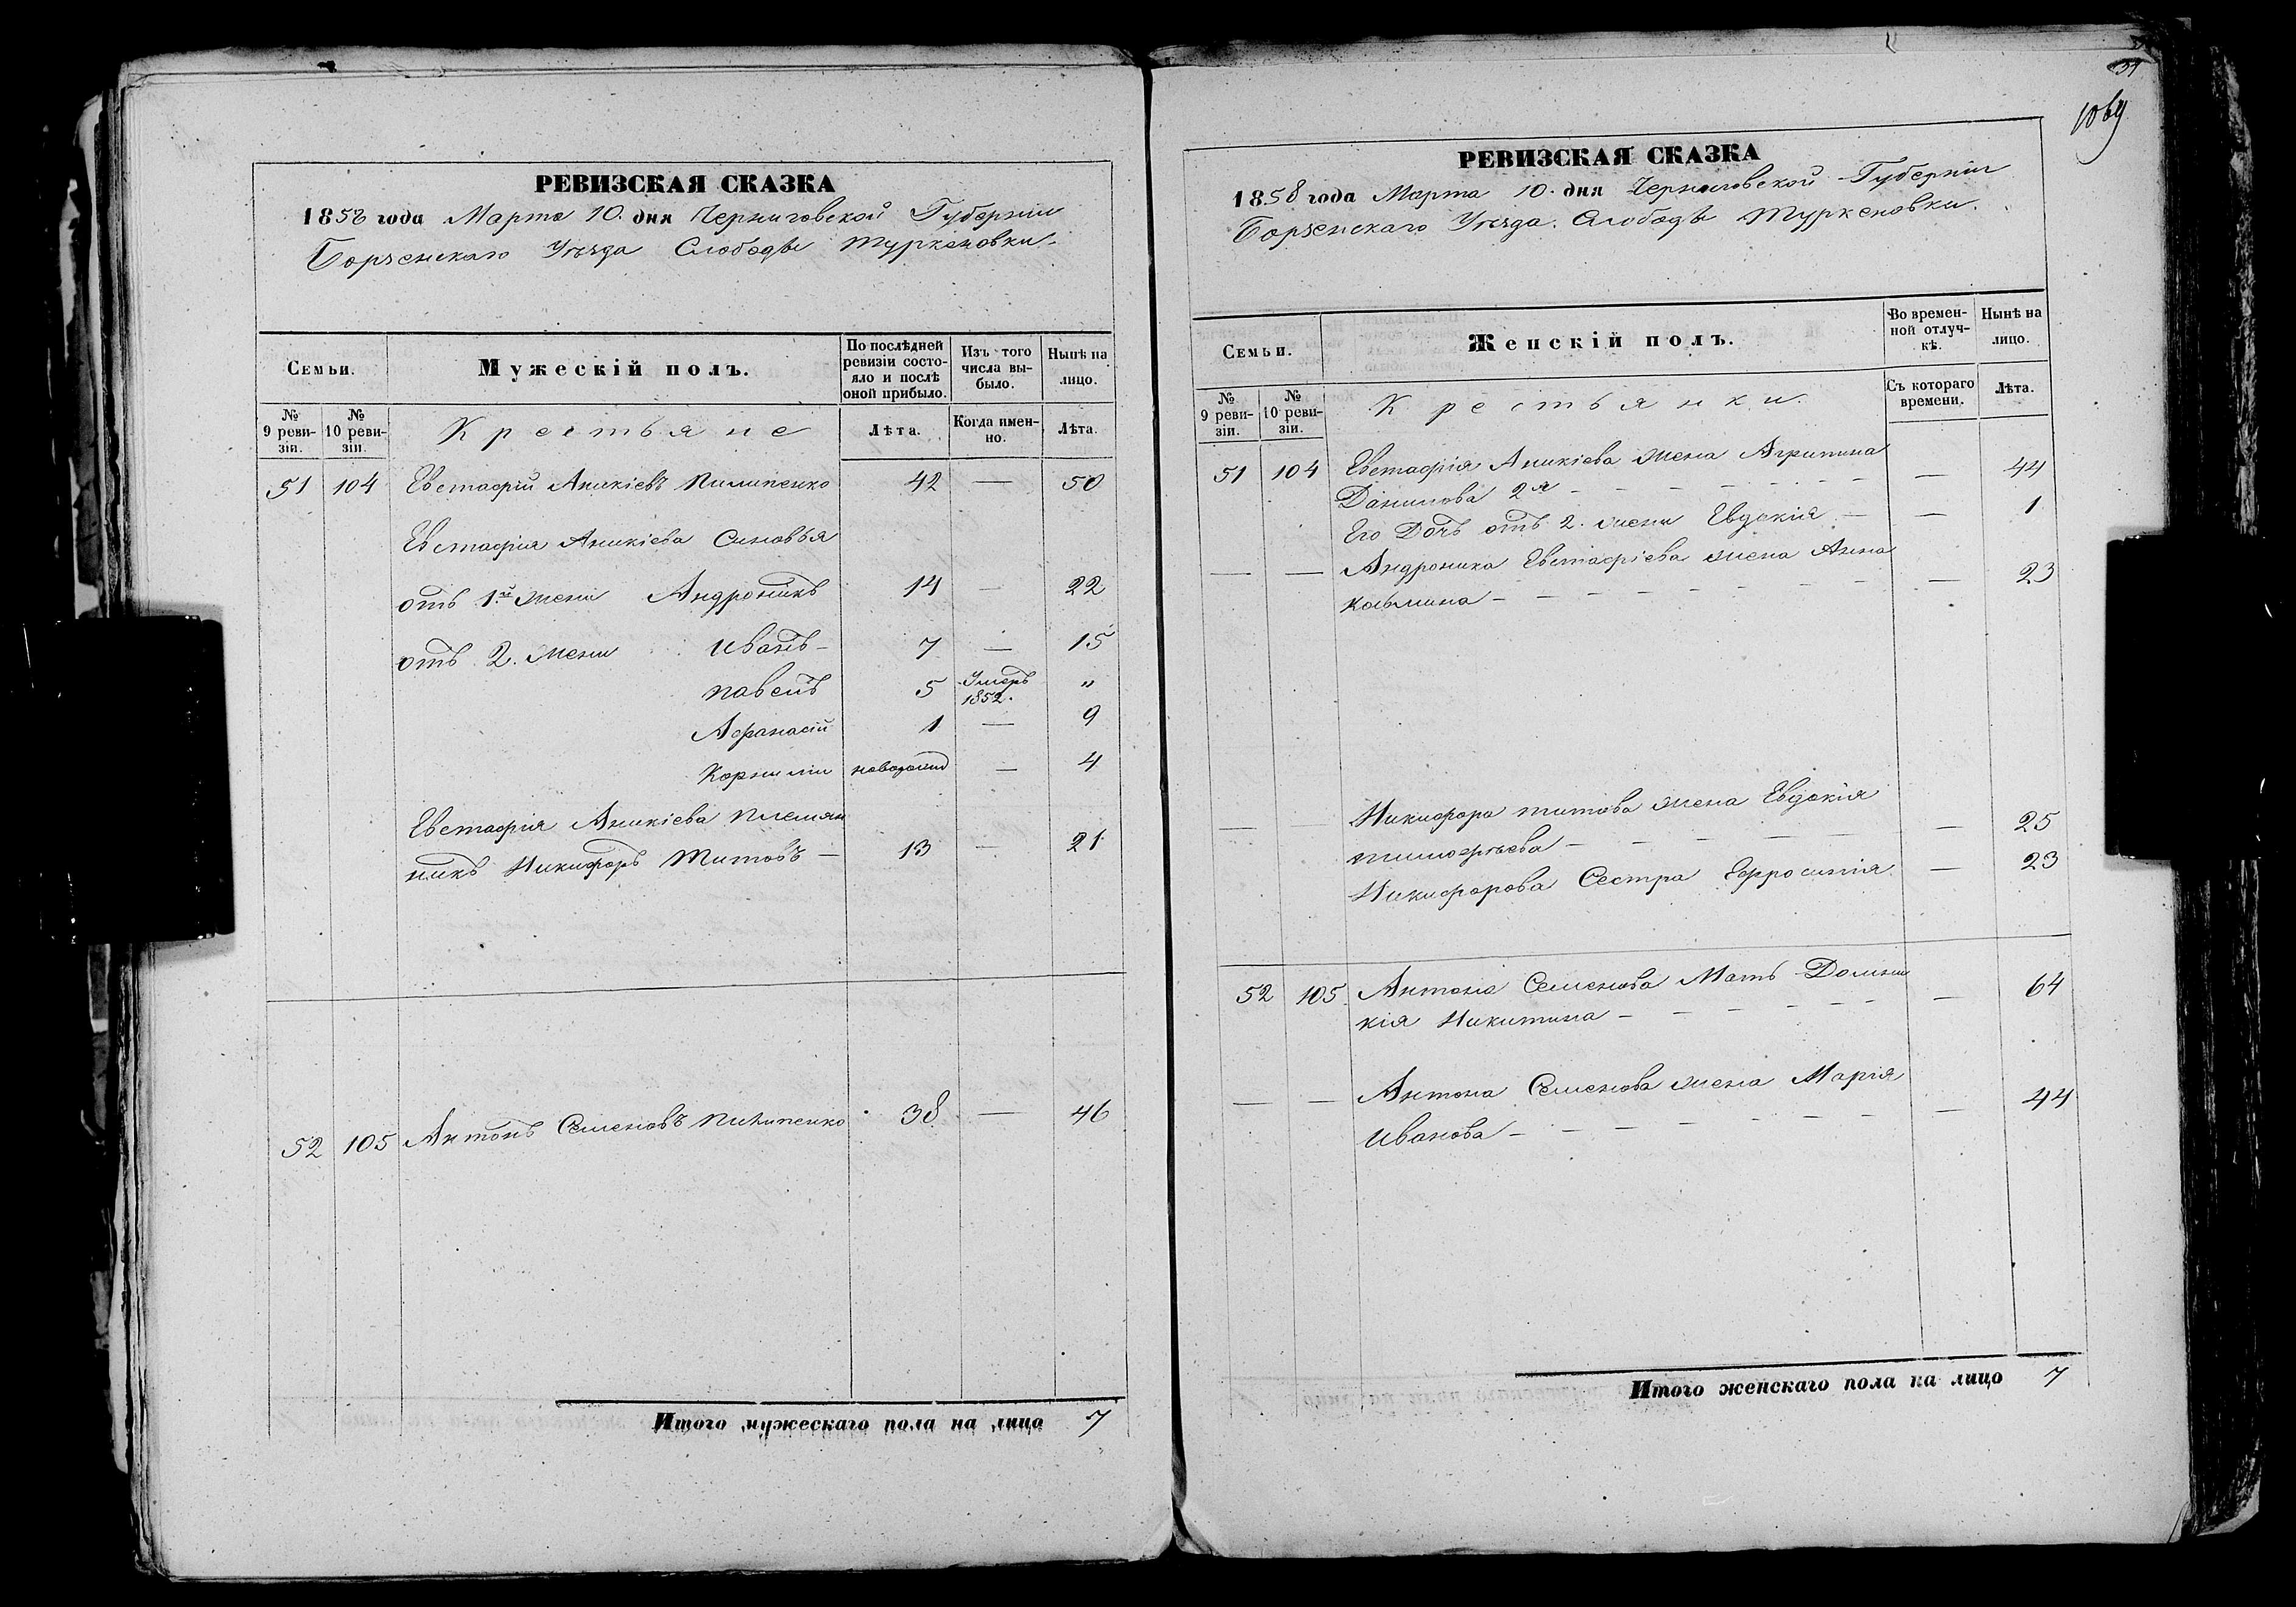 РЕВИЗСКАЯ СКАЗКА
1858 года Марта 10. дня Черниговской Губерніи
Борзенскаго Уѣзда Слободы Туркеновки
Семьи.
Мужескій полъ.
По послѣдней ревизіи состояло и послѣ оной прибыло.
Изъ того числа выбыло.
Нынѣ на лицо.
№ 9 ревизіи.
№ 10 ревизіи.
Крестьяне
Лѣта.
Когда именно.
Лѣта.
51 104 Евстафій Аникіевъ Пилипенко 42 — 50
Евстафія Аникіева Сыновья
отъ 1й жены Андроникъ 14 — 22
отъ 2. жены Иванъ — 7 — 15
Павелъ 5 Умеръ 1852. "
Афанасій 1 — 9
Корнилій новорожд — 4
Евстафія Аникіева племян
никъ Никифоръ Титовъ — 13 — 21
52 105 Антонъ Семеновъ Пилипенко 38 — 46
Итого мужескаго пола на лицо 7
1069
РЕВИЗСКАЯ СКАЗКА
1858 года Марта 10. дня Черниговской Губерніи
Борзенскаго Уѣзда. Слободы Туркеновки.
Семьи.
Женскій полъ.
Во временной отлучкѣ.
Нынѣ на лицо.
№ 9 ревизіи.
№ 10 ревизіи.
Крестьянки.
Съ котораго времени.
Лѣта.
51 104 Евстафія Аникіева жена Агрипина
Данилова 2я — — 44
Его Дочь отъ 2. жены Евдокія — — 1
— — Андроника Евстафіева жена Анна
Козьмина — — 23
— — Никифора Титова жена Евдокія
Тимофѣева — — 25
Никифорова Сестра Ефросинія — 23
52 105 Антона Семенова Мать Домни
кія Никитина — — 64
— — Антона Семенова жена Марія
Иванова — — 44
Итого женскаго пола на лицо 7